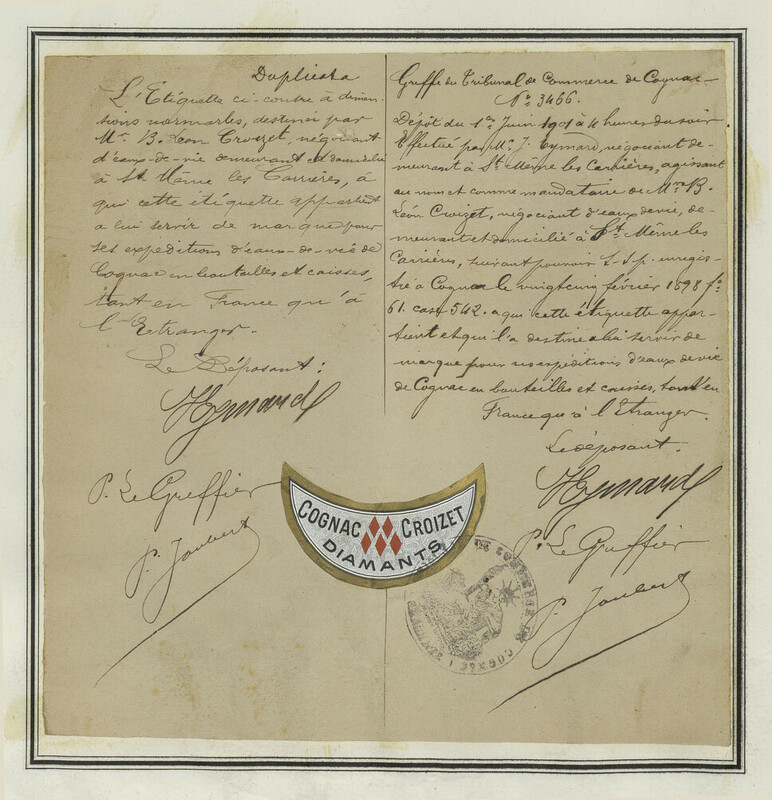 Duplicata
L'Etiquette ci-contre à dimen-
tions normales, destinée par
Mr. B. Léon Croizet, négociant
d'eaux-de-vie demeurant et domicilié
à St Même les Carrières, à
qui cette étiquette appartient
a lui servir de marque pour
ses expéditions d'eaux-de-vie de
Cognac en bouteilles et caisses,
tant en France qu'à
l'Etranger.
Le Déposant:
JEymard
P. Le Greffier
P. Joubert
Greffe du Tribunal de Commerce de Cognac
No. 3466.
Dépôt du 1er Juin 1901 à 4 heures du soir
Effectué par Mr. J. Eymard, négociant de-
meurant à St Même les Carrières, agissant
au nom et comme mandataire de Mr. B.
Léon Croizet, négociant d'eaux de vie, de-
meurant et domicilié à St. Même les
Carrières, suivant pouvoir s.s.p. enregis-
tré à Cognac le vingt cinq février 1898 fo
61. case 542. a qui cette étiquette appar-
tient et qui l'a destine a lui servir de
marque pour ses expéditions d'eaux de vie
de Cognac en bouteilles et caisses, tant en
France qu'à l'Etranger.
Le déposant.
JEymard
P. Le Greffier
P. Joubert
COGNAC CROIZET
DIAMANTS
COMMERCE DE
COGNAC